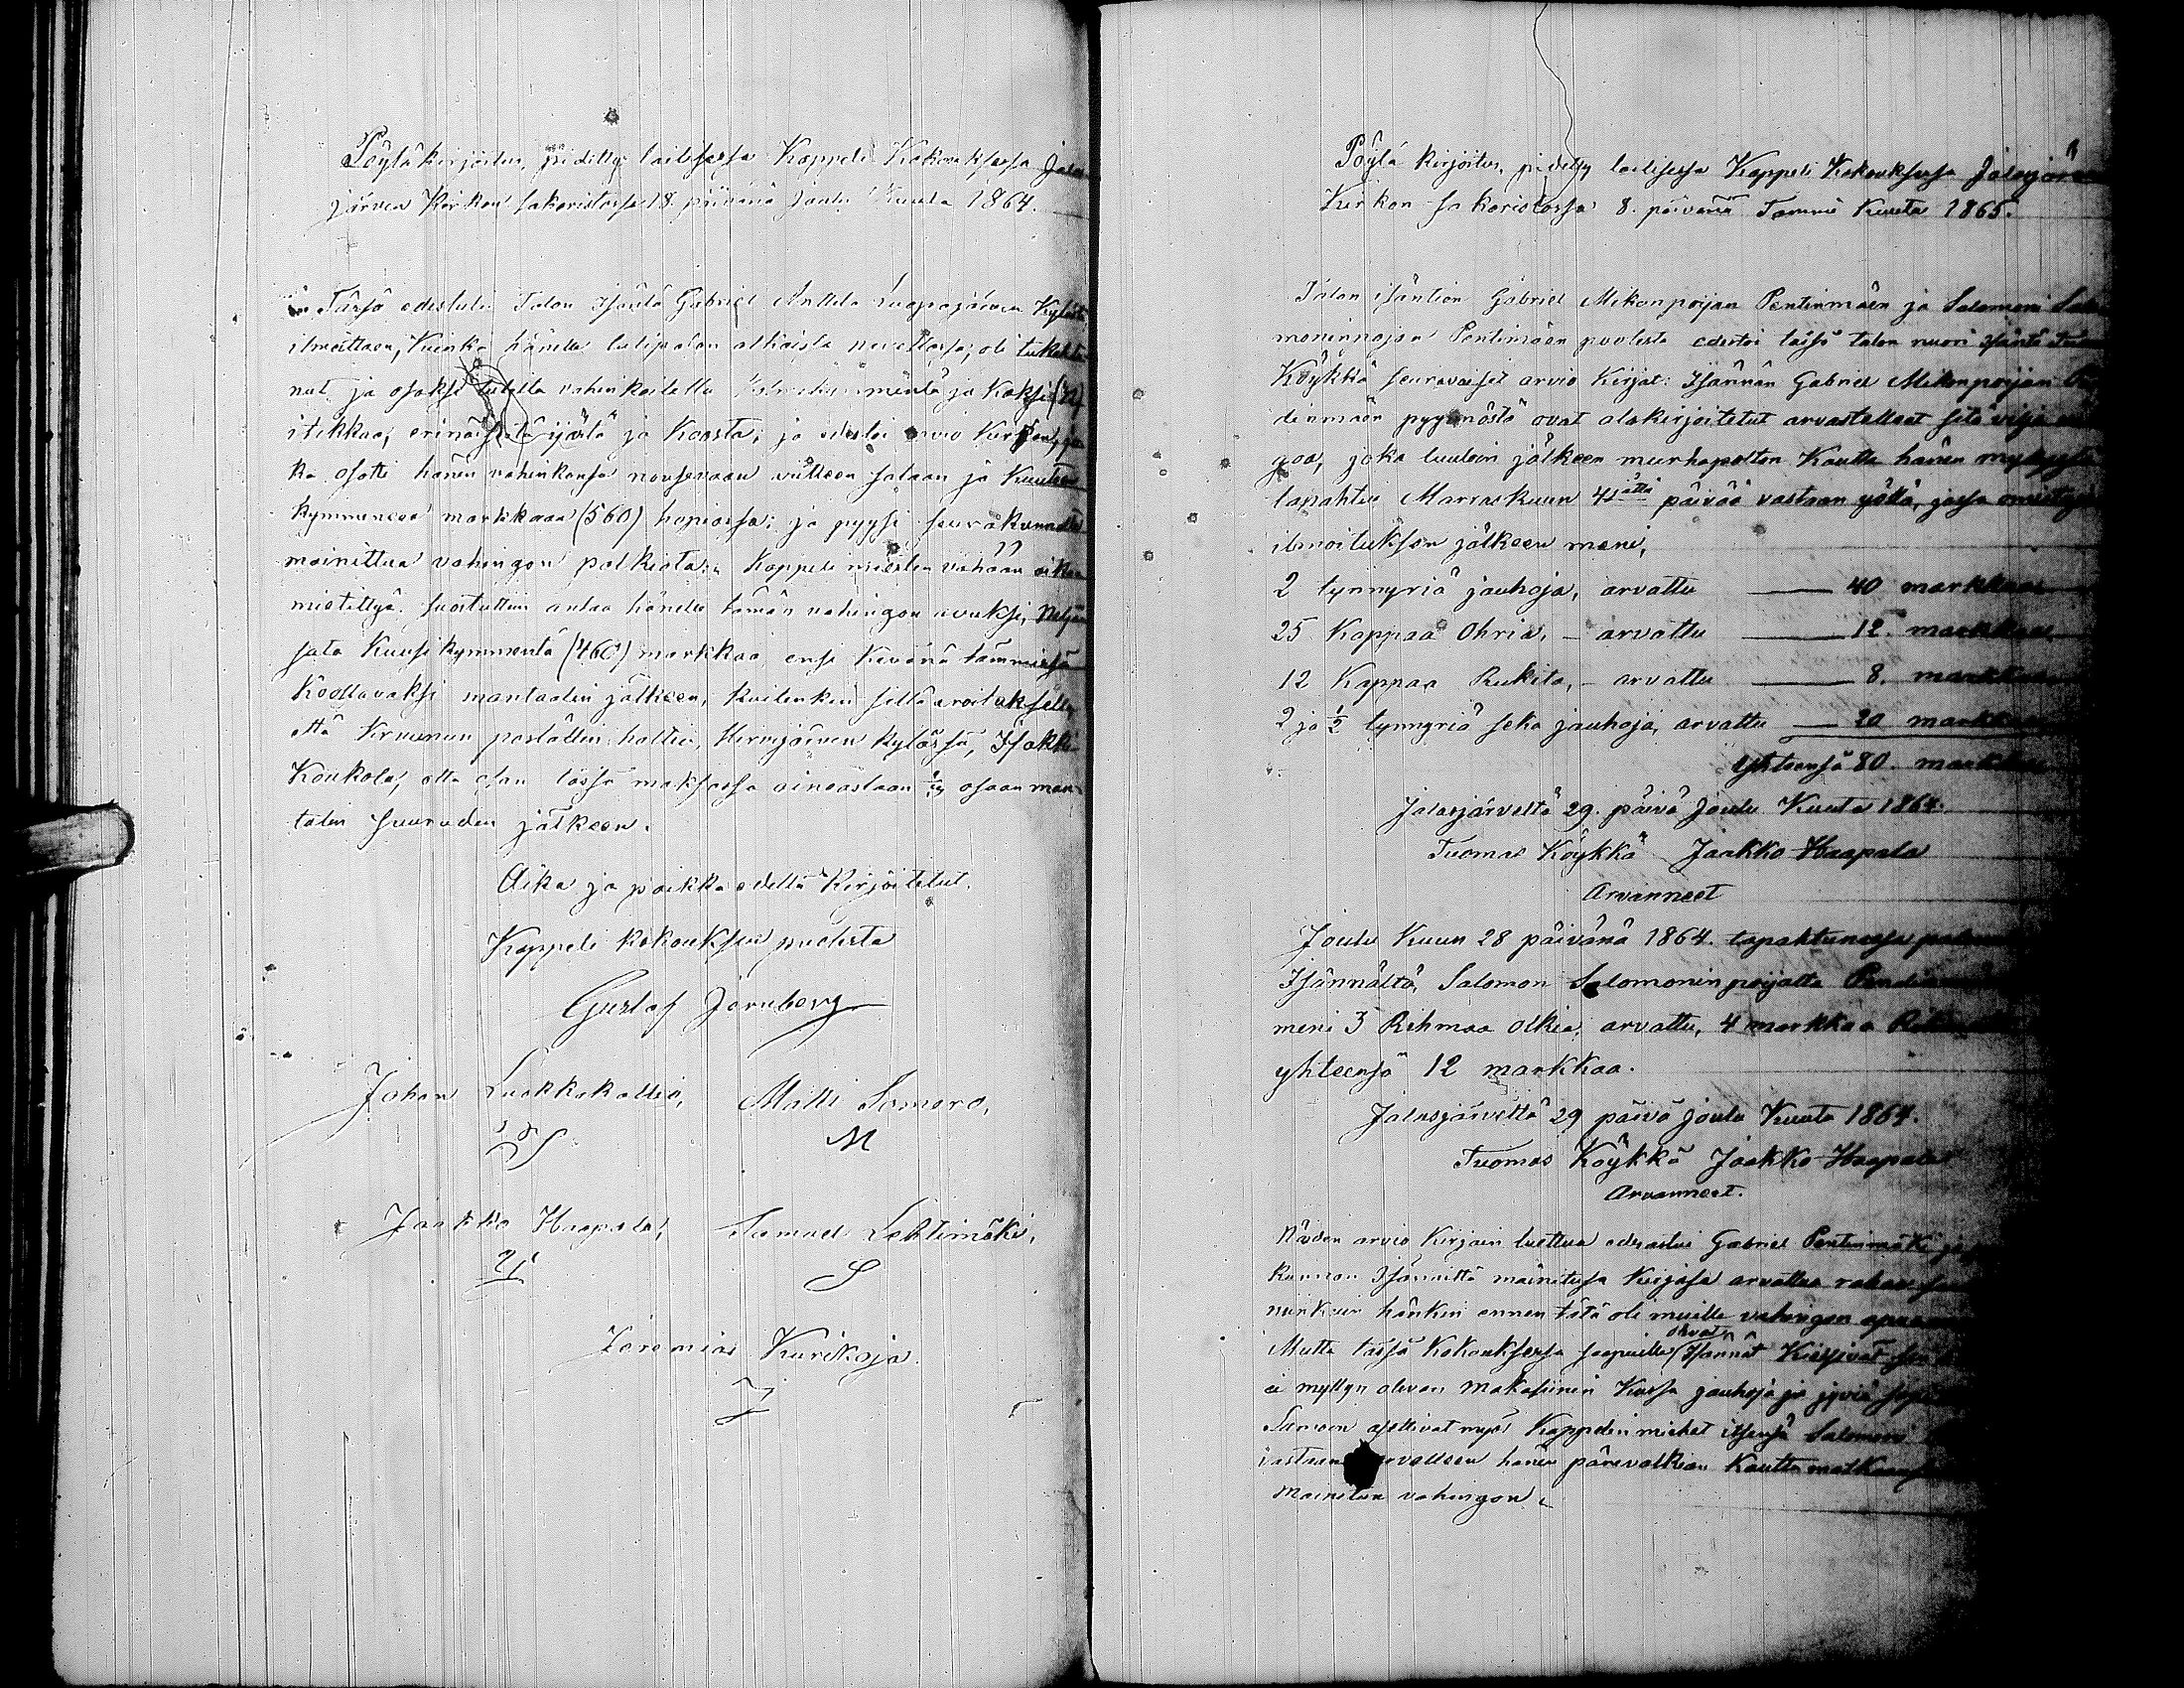 Pöytäkirjoitus, pidetty lailisessa Kappeli Kokouksessa Jalas
järven Kirkon sakaristossa 18. päivänä Joulu Kuuta 1864.
Tässä edestuli Talon Isäntä Gabriel Anttila Luopajärven Kylästä
ilmoittaen, Kuinka hänellä tulipalon alkaista navettassa, oli tukehtu
nut ja osaksi tulelta vahinkoitettu ja Kaksi
itikkaa, erinäisestä ijästä ja Koosta; ja edestoi arvio Kirjan, jo
ka osotti hänen vahinkonsa nousevaan viiteen sataan ja Kuuteen
Kymmeneen markkaan (560) hopiassa; ja pyysi seurakunnalta
mainittua vahingon palkiota. Kappeli miesten vähään aikaa
mietittyä suostuttiin antaa hänelle tämän vahingon avuksi, Neljä
sata Kuusikymmentä (460) markkaa, ensi Kevänä tammissa
Koottavaksi mantaalin jälkeen, Kuitenkin sillä eroituksella,
että Kruunun poställin haltia, Hirvijärven Kylässä, Isakki
Koukola, otta osan tässä maksossa ainoastaan osaan man
talin suuruden jälkeen.
Aika ja paikka edellä Kirjoitetut.
Kappeli kokouksen puolesta
Gustaf Jernberg
Johan Luokkakallio, Matti Samaro,
M
Jaakko Haapala, Samuel Lehtimäki,
S
Jeremias Kurikoja.
J
Pöytä kirjoitus, pidetty lailisessa Kappeli Kokouksessa Jalasjärven
Kirkon sakaristossa 8. päivänä Tammi Kuuta 1865.
Talon isäntien Gabriel Mikonpoijan Pentinmäen ja Salomoni Salo
moninpojan Pentinmäen puolesta edestoi täisä talon nuori isäntä
Köykkä seuraavaiset arvio Kirjat: Isännän Gabriel Mikonpoijan Pen
dinmäen pyynnöstä ovat alakirjoitetut arvastelleet sitä vilja
goa, joka luulon jälkeen murhapolton Kautta hänen myllystä
tapahtui Marraskuun 4stättä päivää vastaan yöllä, jossa omistajan
ilmoituksen jälkeen meni,
2 tynnyriä jauhoja, arvattu — 40 markkaa
25 Kappaa Ohria, — arvattu — 12. markkaa
12 Kappaa Rukita, — arvattu — 8. markkaa
2 ja ½ tynnyriä seka jauhoja, arvattu — 20 markkaa
Yhteensä 80. markkaa
Jalasjärveltä 29. päivä Joulu Kuuta 1864.
Tuomas Köykkä Jaakko Haapala
Arvanneet
Joulu Kuun 28 päivänä 1864. tapahtunessa palossa
Isännältä, Salomon Salomonin poijalta Pendinmäen
meni 3 Rihmaa olkia, arvattu, 4 markkaa Rihma
yhteensä 12 markkaa.
Jalasjärveltä 29 päivä Joulu Kuuta 1864.
Tuomas Köykkä Jaakko Haapala
Arvanneet.
Näiden arvio Kirjain luettua edesastui Gabriel Pentinmäki ja
Kunnan Isänniltä mainitussa Kirjassa arvattua rahaa
niinkuin hänkin ennen tätä oli muille vahingon apua
Mutta tässä Kokouksessa saapuilla olevat Isännät Kielsivät
ei myllyn olevan Makasiinin Kussa jauhoja ja jyviä
Samoon asettivat myös Kappelin miehet itsensä Salomoni
vastaan hänen pärevalkian Kautta matkaan
mainitun vahingon.